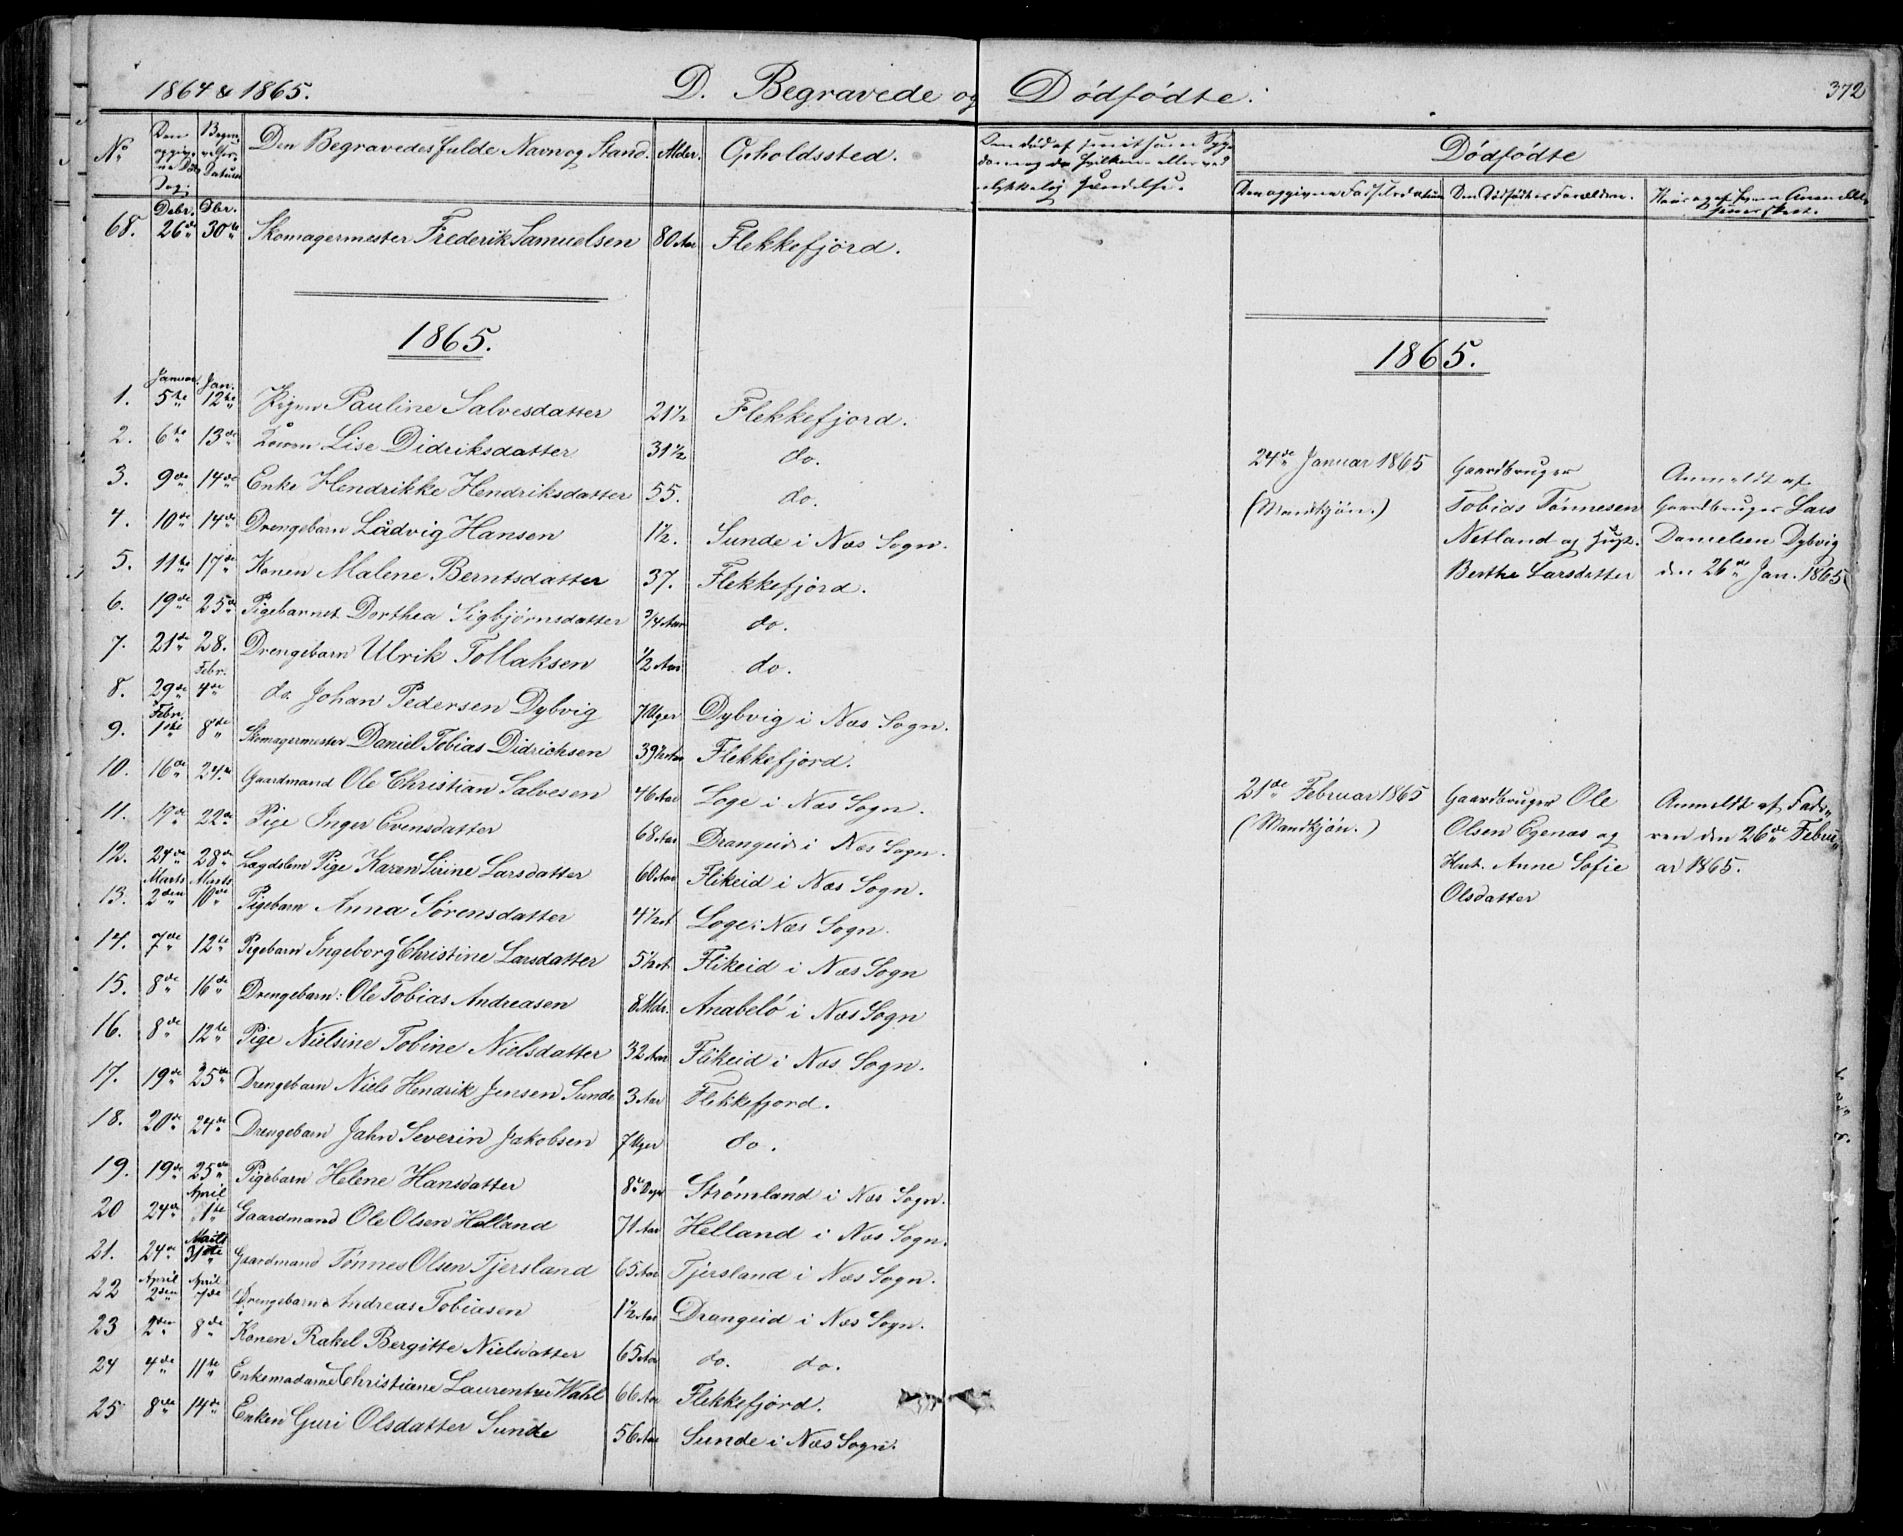 1864 & 1865.
D. Begravede og Dødfødte.
372
No
Den opgivne Døds Dag.
Begravelses Datum
Den Begravedes fulde Navn og Stand.
Alder.
Opholdssted.
Dødfødte
Den opgivne Fødselsdatum
Den Dødfødtes Forældre.
68. Debr. 26de Dbr. 30te Skomagermester Frederik Samuelsen 80 Aar Flekkefjord.
1865.
1865.
1. Januar. 5te Jan. 12te Pigen Pauline Salvesdatter 21½ Flekkefjord.
2. 6te 13de Konen Lise Didriksdatter 31½ do.
3. 9de 14de Enke Hendrikke Hendriksdatter 55. do.
4. 10de 14de Drengebarn Ludvig Hansen 1½. Sunde i Næs Sogn.
5. 11te 17de Konen Malene Berntsdatter 37. Flekkefjord.
6. 19de 25de Pigebarnet Dorthea Sigbjørnsdatter ¾ Aar do.
7. 21de 28. Drengebarn Ulrik Tollaksen ½ Aar do.
8. 29de Febr. 4de do. Johan Pedersen Dybvig 7 Uger Dybvig i Næs Sogn.
9. Febr. 1ste 8de Skomagermester Daniel Tobias Didrichsen 39½ Aar Flekkefjord.
10. 16de 24de Gaardmand Ole Christian Salvesen 46 Aar Loge i Næs Sogn.
11. 17de 22de Pige Inger Evensdatter 68 Aar Drangeid i Næs Sogn.
12. 24de 28de Lægdslem Pige Karen Sirine Larsdatter 60 Aar Flikeid i Næs Sogn.
13. Marts 2den Marts 10de Pigebarn Anna Sørensdatter 4½ A Loge i Næs Sogn.
14. 7de 12te Pigebarn Ingeborg Christine Larsdatter 5½ A Flikeid i Næs Sogn
15. 8de 16de Drengebarn: Ole Tobias Andreasen 8 Mdr. Anabelø i Næs Sogn
16. 8de 12te Pige Nielsine Tobine Nielsdatter 32 Aar Flikeid i Næs Sogn.
17. 19de 25de Drengebarn Niels Hendrik Jensen Sunde 3 Aar Flekkefjord.
18. 20de 24de Drengebarn Jahn Severin Jakobsen 7 Uger do.
19. 19de 25de Pigebarn Helene Hansdatter 8 Dage Strømland i Næs Sogn.
20 24de April 1ste Gaardmand Ole Olsen Helland 71 Aar Helland i Næs Sogn.
21. 24de Marts 31te Gaardmand Tønnes Olsen Tjersland 65 Aar Tjersland i Næs Sogn.
22 April 2den April 7de Drengebarn Andreas Tobiasen 1½ Aar Drangeid i Næs Sogn.
23 2den 8de Konen Rakel Bergitte Nielsdatter 65 Aar do. do.
24 4de 11te Enkemadame Christiane Laurentze Wahl 66 Aar Flekkefjord.
25 8de 14de Enken Guri Olsdatter Sunde 56 Aar Sunde i Næs Sogn.
24de Januar 1865
(Mandkjøn.)
Gaardbruger
Tobias Tønnesen
Netland og Hust.
Berthe Larsdatter
Anmeldt af
Gaardbruger Lars
Danielsen Dybvig
den 26de Jan. 1865
21de Februar 1865
(Mandkjøn.)
Gaardbruger Ole
Olsen Egenæs og
Hust. Anne Sofie
Olsdatter
Anmeldt af Fade-
ren den 26de Febru-
ar 1865.